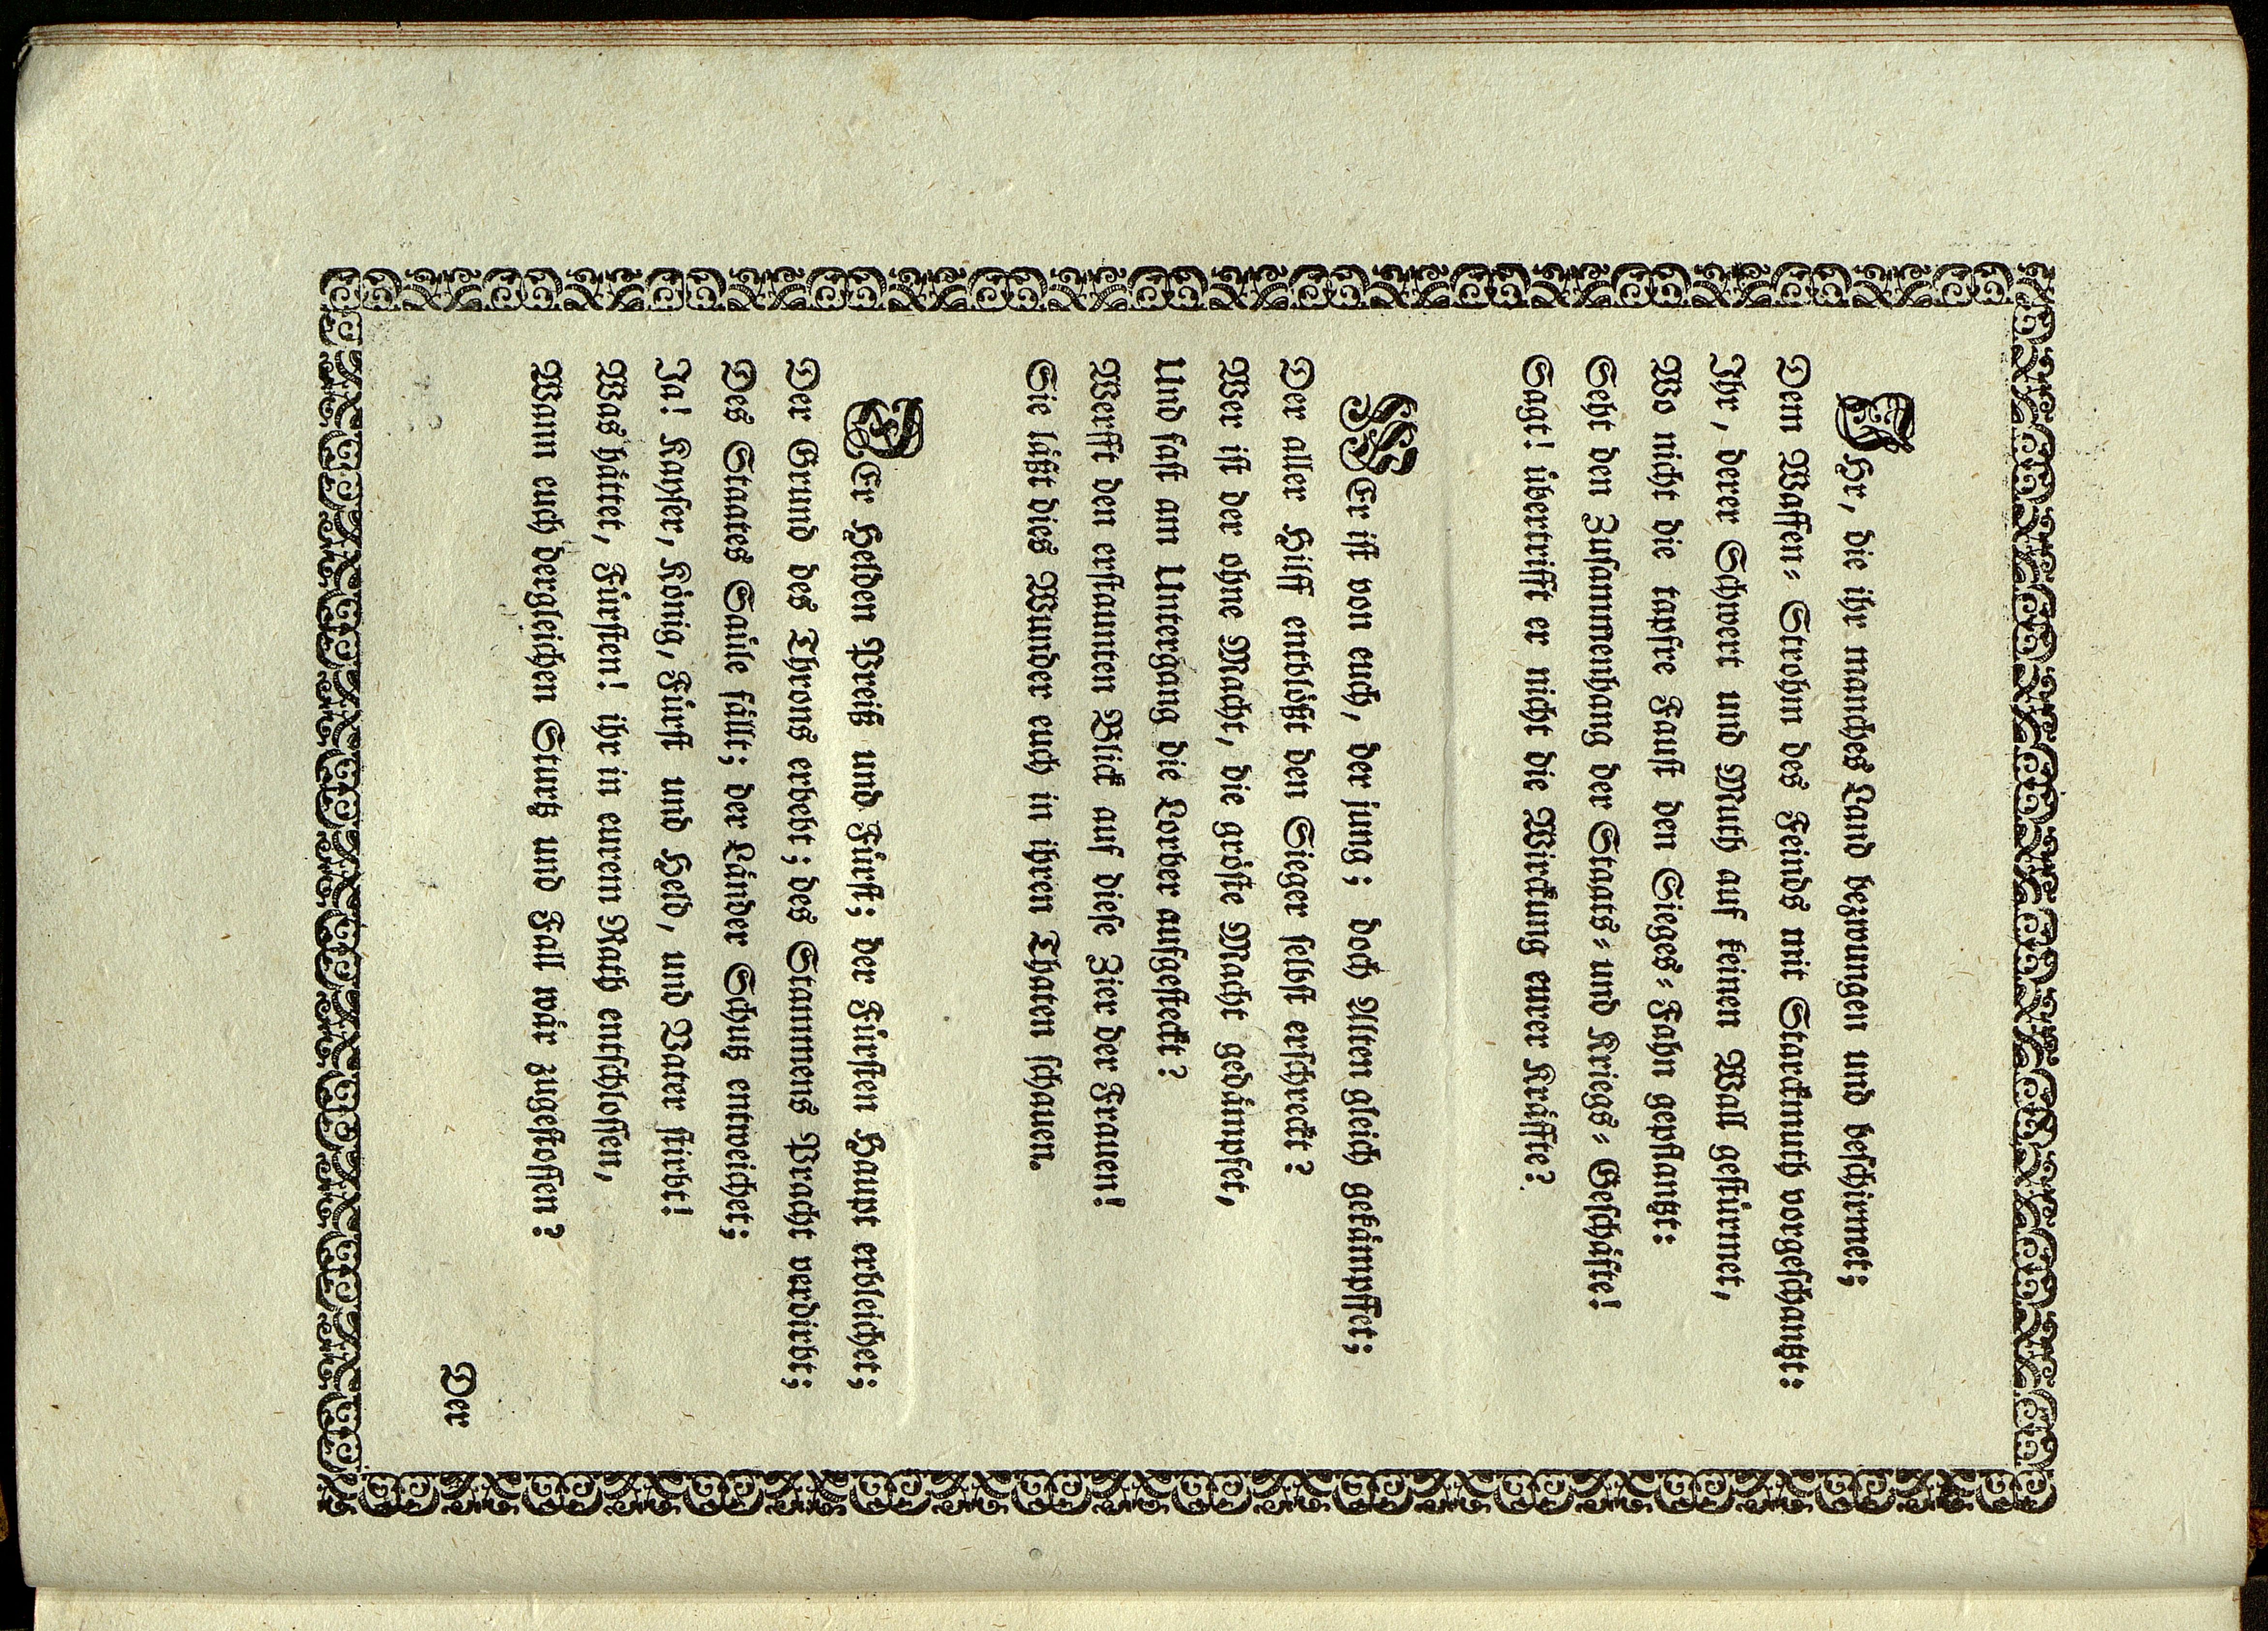 IHr, die ihr manches Land bezwungen und beschirmet;
Dem Waffen-Strohm des Feinds mit Starckmuth vorgeschantzt:
Ihr, derer Schwert und Muth auf keinen Wall gestürmet,
Wo nicht die tapfre Faust den Sieges-Fahn gepflantzt:
Seht den Zusammenhang der Staats-und Kriegs-Geschäfte!
Sagt! übertrifft er nicht die Würckung eurer Kräffte?
WEr ist von euch, der jung; doch Alten gleich gekämpffet;
Der aller Hilff entblößt den Sieger selbst erschreckt?
Wer ist der ohne Macht, die gröste Macht gedämpfet,
Und fast am Untergang die Lorber aufgesteckt?
Werfft den erstaunten Blick auf diese Zier der Frauen!
Sie läßt dies Wunder euch in ihren Thaten schauen.
DEr Helden Preiß und Fürst; der Fürsten Haupt erbleichet;
Der Grund des Throns erbebt; des Stammens Pracht verdirbt;
Des Staates Saüle fällt; der Länder Schutz entweichet;
Ja! Kayser, König, Fürst und Held, und Vater stirbt!
Was hättet, Fürsten! ihr in eurem Rath entschlossen,
Wann euch dergleichen Sturtz und Fall wär zugestossen?
Der